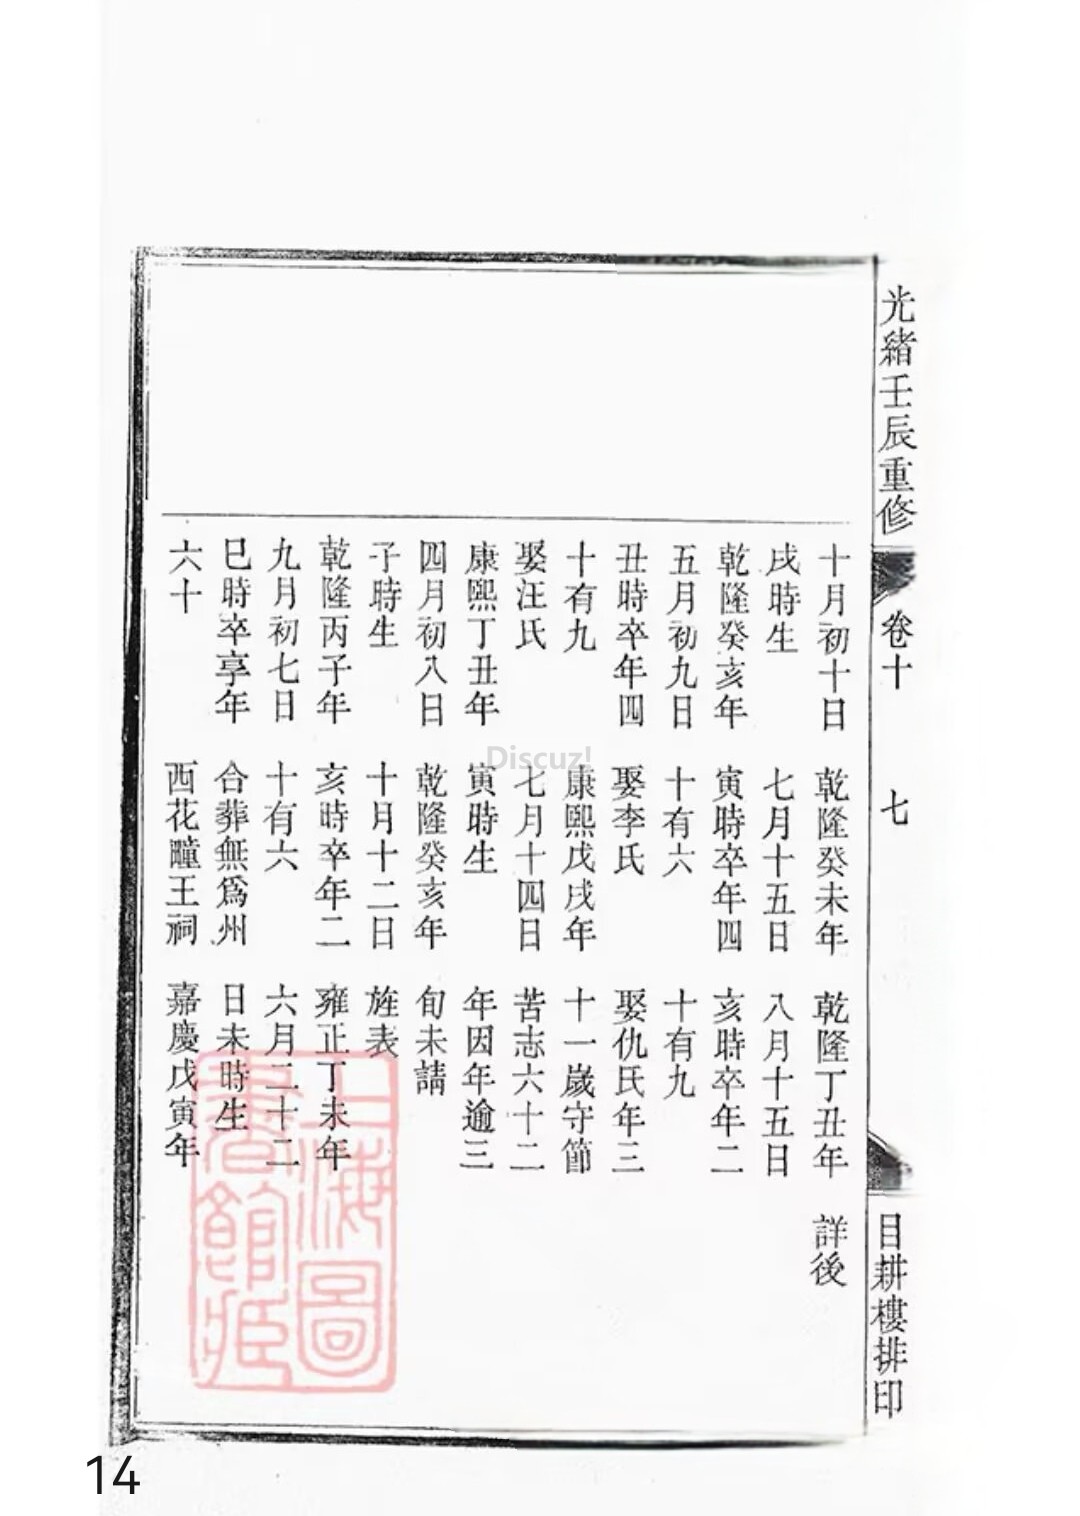 光緒壬辰重修
卷十
七
目耕樓排印
十月初十日
戌時生
乾隆癸亥年
五月初九日
丑時卒年四
十有九
娶汪氏
康熙丁丑年
四月初八日
子時生
乾隆丙子年
九月初七日
巳時卒享年
六十
乾隆癸未年
七月十五日
寅時卒年四
十有六
娶李氏
康熙戊戌年
七月十四日
寅時生
乾隆癸亥年
十月十二日
亥時卒年二
十有六
合葬無爲州
西花疃王祠
乾隆丁丑年
八月十五日
亥時卒年二
十有九
娶仇氏年三
十一歲守節
苦志六十二
年因年逾三
旬未請
旌表
雍正丁未年
六月二十二
日未時生
嘉慶戊寅年
詳後
上海圖
書館藏
Discuz!
14